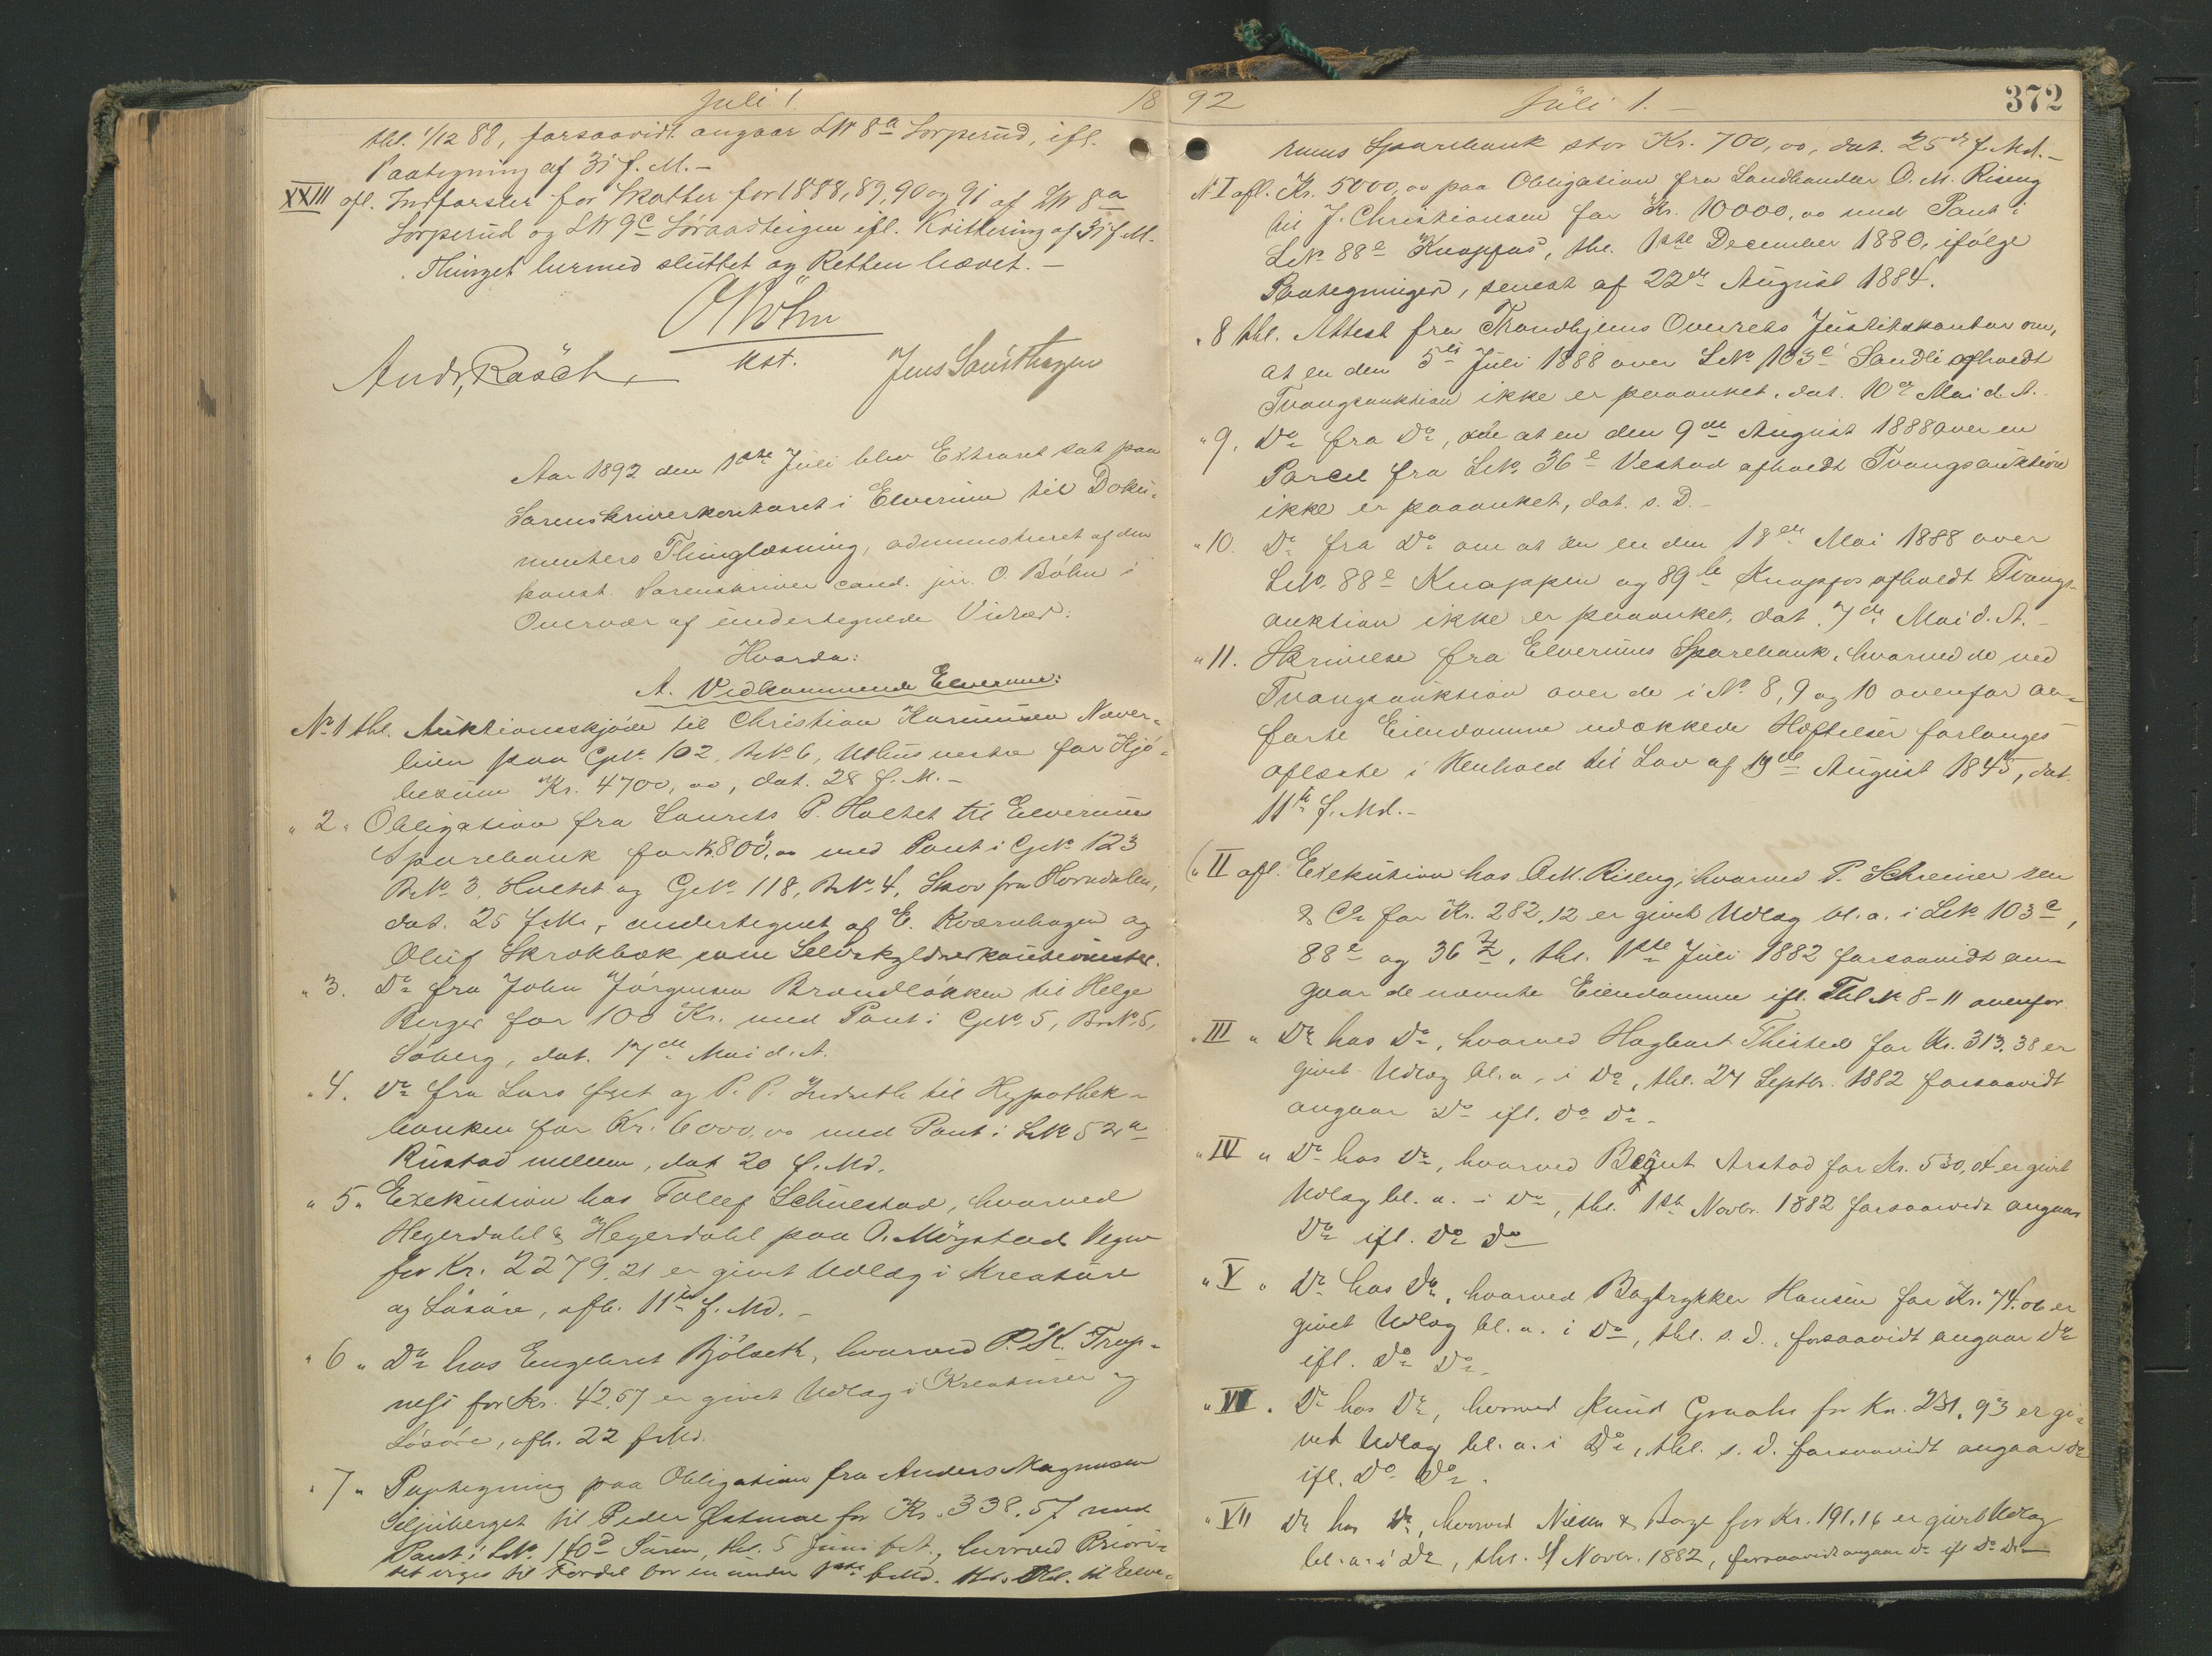 Juli 1.
18
thl. 1/12 88, forsaavidt angaar LN 8a Sorperud, ifl.
Paategning af 31 f. M.-
XXIII afl. Indførsler for Skatter for 1888, 89, 90 og 91 af LN 8a
Sørperud og LN 9c Søraasteigen ifl. Kvittering af 31 f. M.
Thinget hermed sluttet og Retten hævet.-
O Bøhn
kst.
Andr. Rasch,
Jens Sandhagen
Aar 1892 den 1ste Juli blev Extraret sat paa
Sorenskriverkontoret i Elverum til Doku-
menters Thinglæsning, administreret af den
konst. Sorenskriver cand. jur. O. Bøhn i
Overvær af undertegnede Vidner:
Hvorda:
A. Vedkommende Elverum:
No 1 thl. Auktionsskjøde til Christian Nover-
lien paa GNo 102, BNo 6, vestre for Kjø-
besum Kr. 4700,00, dat. 28 f. M.-
" 2 " Obligation fra Laurits P. Holtet til Elverums
Sparebank for K. 800,00 med Pant i GNo 123
BNo 3, Holtet og GNo 118, BNo 4, Skov fra Horndalen,
dat. 25 f. M., undertegnet af E. Kværnhagen og
Oluf Skrokbæk som Selvskyldnerkautionister.
" 3. Do fra John Jørgensen Brændløkken til Helge
Berger for 100 Kr. med Pant i GNo 5, BNo 5,
Søberg, dat. 17de Mai d. A.
" 4. Do fra Lars og P. P. til Hypothek-
banken for Kr. 6000,00 med Pant i LN 52a
Rustad mellem, dat 20 f. Md.
" 5 " Exekution hos Tollef Schulstad, hvorved
Hegerdahl & Hegerdahl paa O. Møystads Vegne
for Kr. 2279,21 er givet Udlæg i Kreature
og Løsøre, afh. 11te f. Md.-
" 6 " Do hos Engebret Bjølseth, hvorved P. K. Trøp-
for Kr. 42,57 er givet Udlæg i Kreaturer og
Løsøre, afh. 22 f. Md.
" 7 " Paategning paa Obligation fra Anders Magnusen
Siljuberget til Peder Østmoe for Kr. 338,57 med
Pant i LNo 140d thl. 5 Juni hvorved Priori-
tet viges til Fordel for en under 1ste f. Md. thl. til Elve-
92
Juli 1.-
372
rums Sparebank stor Kr. 700,00, dat. 25de f. Md.-
N I afl. Kr. 5000,00 paa Obligation fra Landhandler O. M. Riseng
til J. Christiansen for Kr. 10000,00 med Pant i
LNo 88e Knappos, thl. 1ste December 1880, ifølge
Paategninger, senest af 22de August 1884.
" 8 thl. Attest fra Trondhjems Overrets Justitskontor om,
at en den 5te Juli 1888 over LNo 103c Sandli afholdt
Tvangsauktion ikke er paaanket, dat. 10de Mai d. A.
" 9. Do fra Do, om at en den 9de August 1888 over en
Parcel fra LNo 36e Vestad afholdt Tvangsauktion
ikke er paaanket, dat. s. D.-
" 10. Do fra Do om at en den 18de Mai 1888 over
LNo 88e Knappen og 89b Knappos afholdt Tvangs-
auktion ikke er paaanket, dat. 7de Mai d. A.-
" 11. Skrivelse fra Elverums Sparebank, hvorved de ved
Tvangsauktion over de i No 8, 9 og 10 ovenfor an-
førte Eiendomme udækkede Hæftelser forlanges
aflæste i Henhold til Lov af 19de August 1845, dat.
11te f. Md.-
" II afl. Exekution hos O. M. Riseng, hvorved P. Schreiner sen
& Co for Kr. 282,12 er givet Udlæg bl. a. i LNo 103c,
88e og 36z, thl. 1ste Juli 1882 forsaavidt an-
gaar de nævnte Eiendomme ifl. Thl. N 8-11 ovenfor.
" III " Do hos Do, hvorved Hagbart Thisted for Kr. 313,38 er
givet Udlæg bl. a. i Do, thl. 27 Septbr. 1882 forsaavidt
angaar Do ifl. Do Do.-
" IV " Do hos Do, hvorved Arstad for Kr. 530,04 er givet
Udlæg bl. a. i Do, thl. 1ste Novbr. 1882 forsaavidt angaar
Do ifl. Do Do
" V " Do hos Do, hvorved Bogtrykker Hansen for Kr. 74,06 er
givet Udlæg bl. a. i Do, thl. s. D., forsaavidt angaar Do
ifl. Do Do.
" VI " Do hos Do, hvorved Knud Graahs for Kr. 231,93 er gi-
vet Udlæg bl. a. i Do, thl. s. D. forsaavidt angaar Do
ifl. Do Do.
" VII Do hos Do, hvorved Nielsen & for Kr. 191,16 er givet Udlæg
bl. a. i Do, thl. Novbr. 1882, forsaavidt angaar Do ifl Do Do